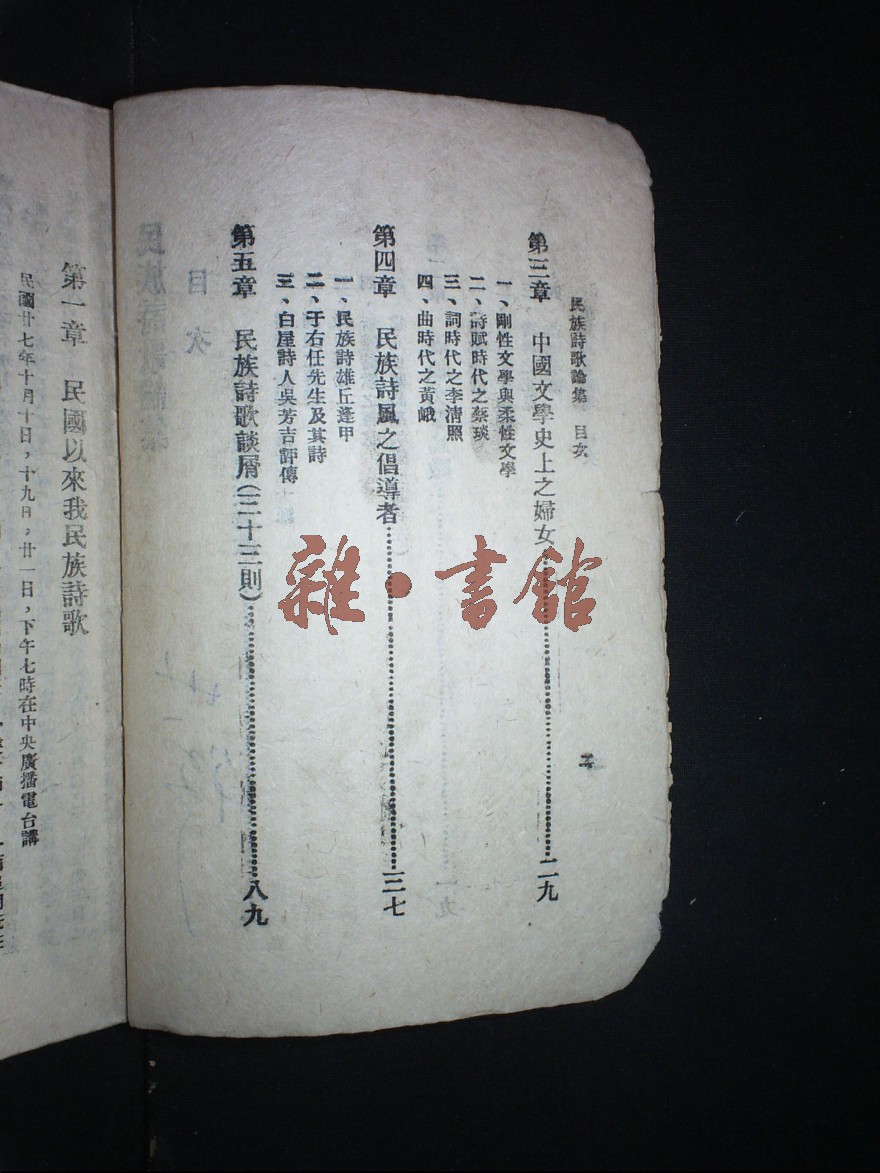 民族詩歌論集　目次
第三章　中國文學史上之婦女……二九
一、剛性文學與柔性文學
二、詩賦時代之蔡琰
三、詞時代之李清照
四、曲時代之黃峨
第四章　民族詩風之倡導者……三七
一、民族詩雄丘逢甲
二、于右任先生及其詩
三、白屋詩人吳芳吉評傳
第五章　民族詩歌談屑（三十三則）……八九
第一章　民國以來我民族詩歌
民國廿七年十月十日，十九日，廿一日，下午七時在中央廣播電台講
雜·書館